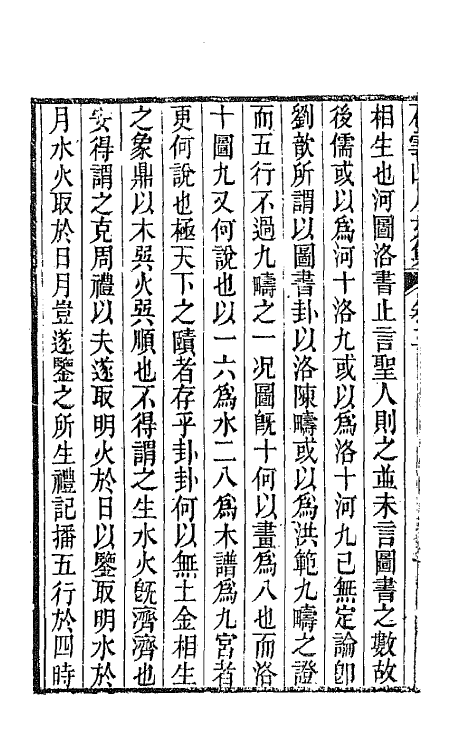 相生也河圖洛書止言聖人則之並未言圖書之數故
後儒或以爲河十洛九或以爲洛十河九已無定論卽
劉歆所謂以圖書卦以洛陳疇或以爲洪範九疇之證
而五行不過九疇之一況圖旣十何以畫爲八也而洛
十圖九又何說也以一六爲水二八爲木譜爲九宮者
更何說也極天下之賾者存乎卦卦何以無土金相生
之象鼎以木㢲火㢲順也不得謂之生水火旣濟濟也
安得謂之克周禮以夫遂取明火於日以鑒取明水於
月水火取於日月豈遂鑒之所生禮記播五行於四時